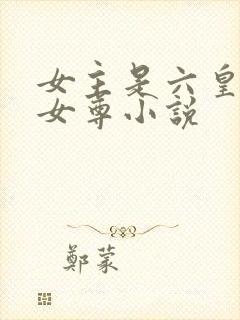 女主是六皇
女尊小説
鄭蒙